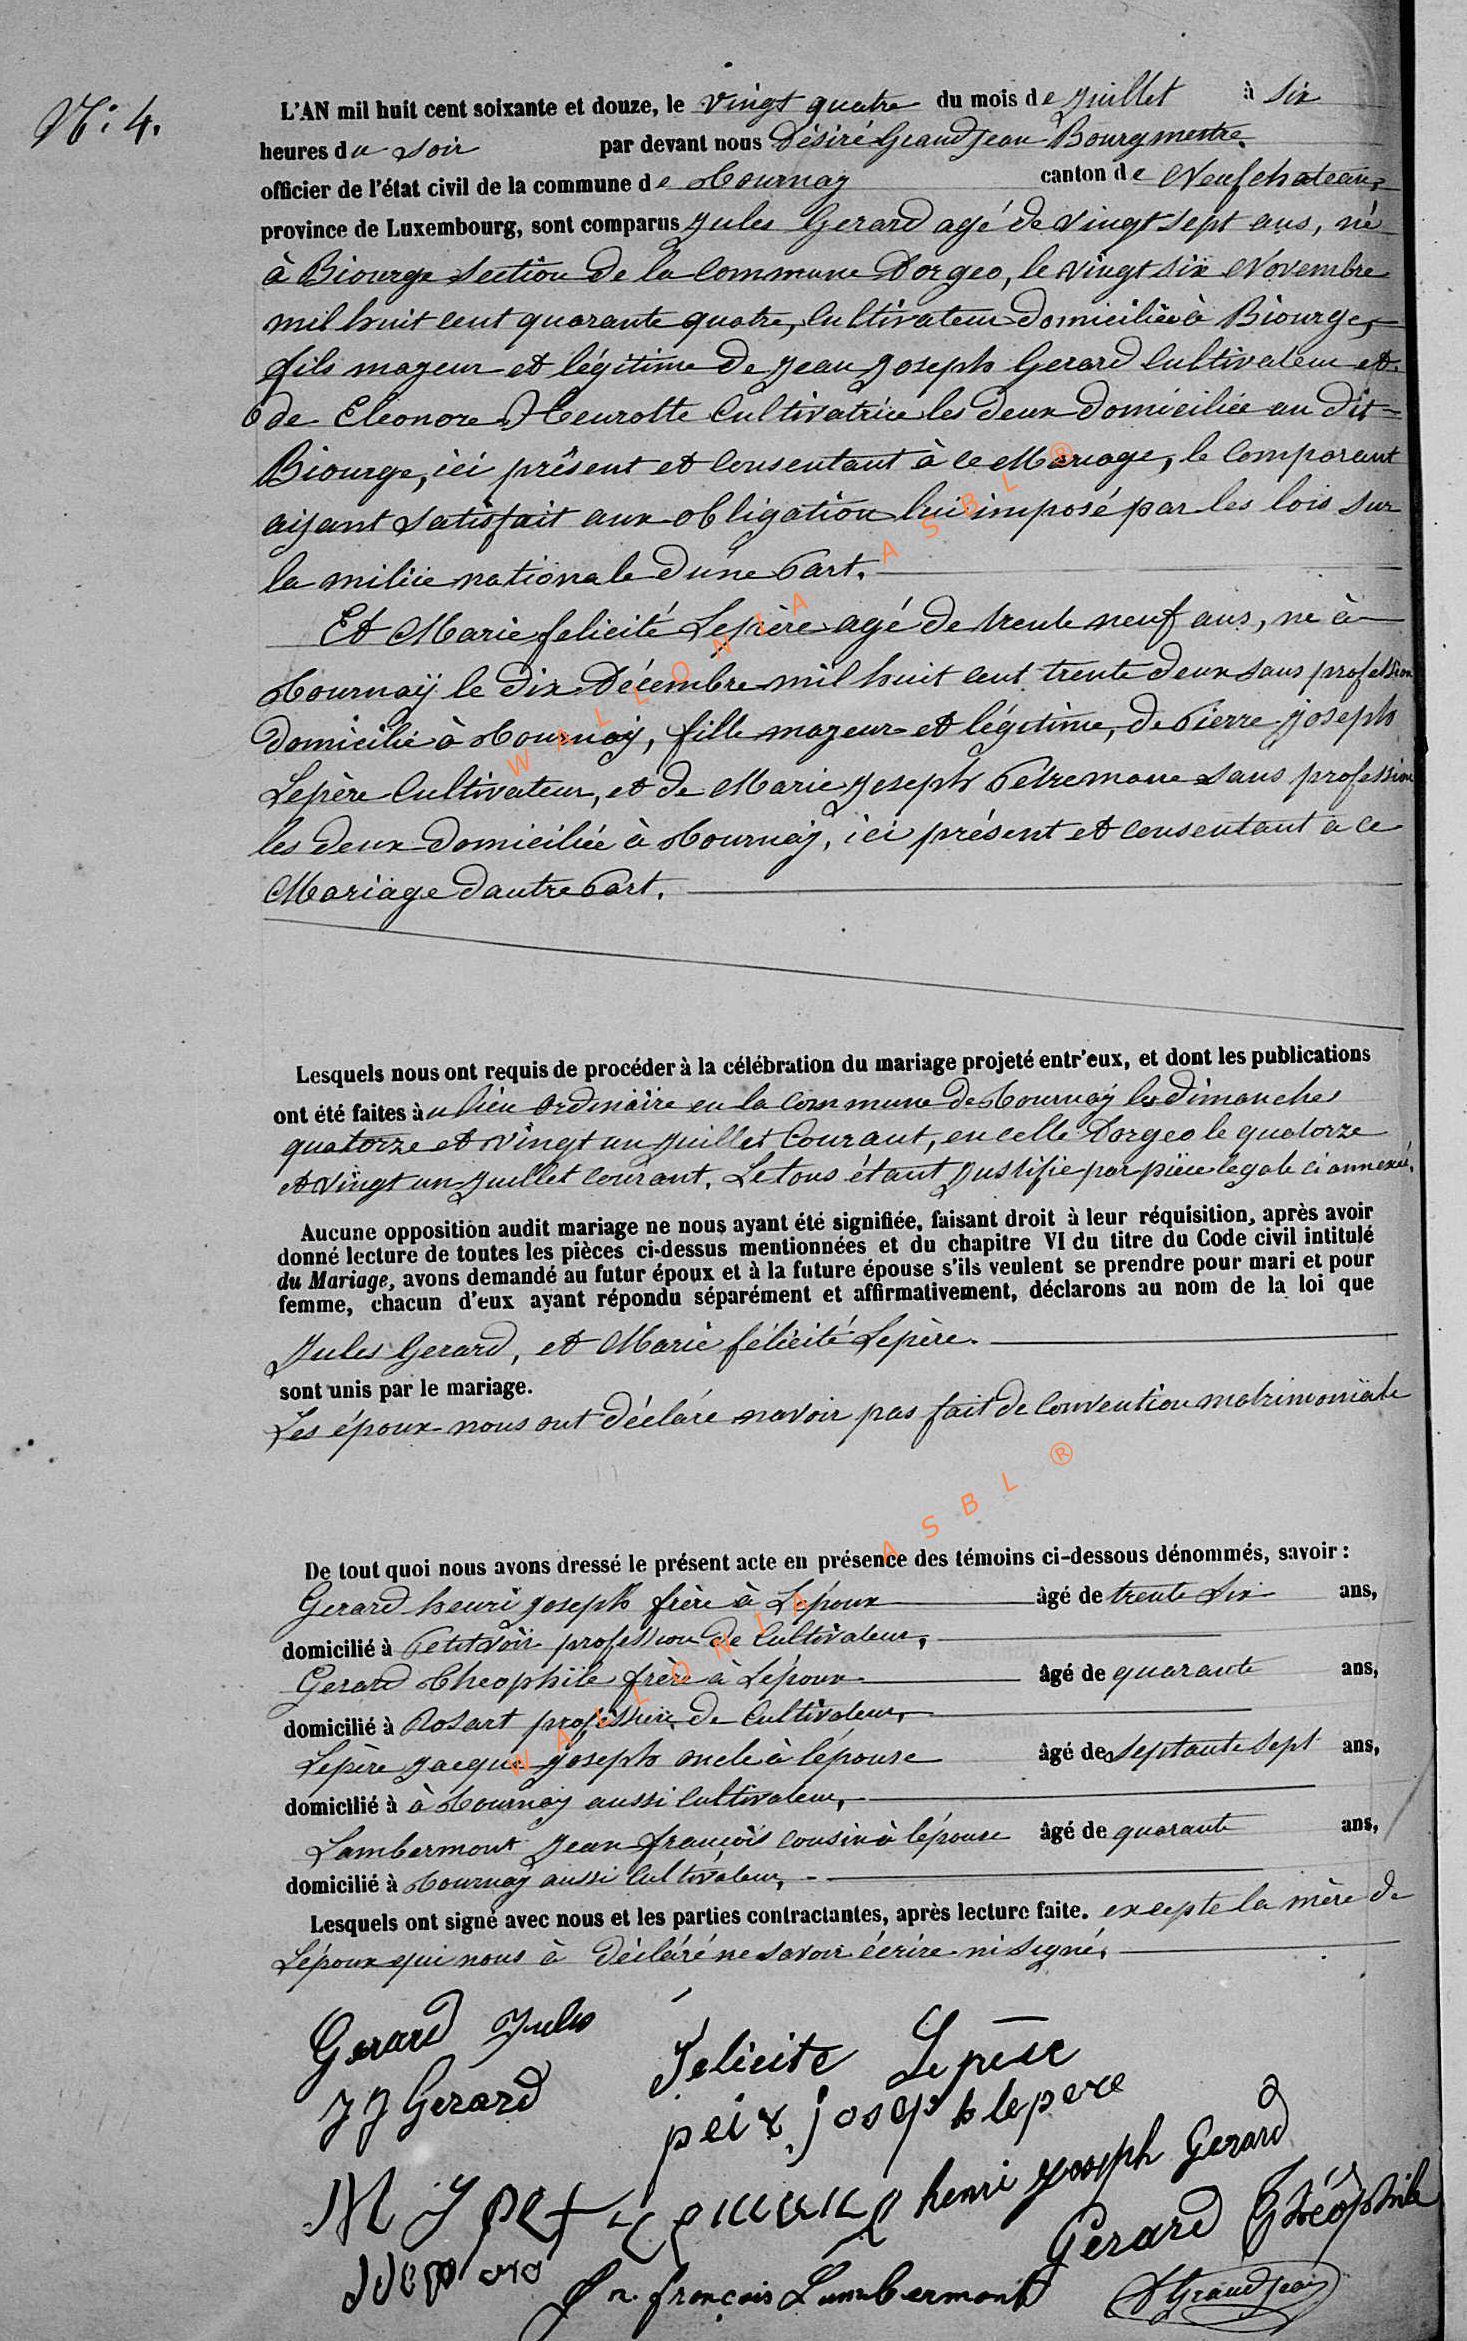 N: 4.
L'AN mil huit cent soixante et douze, le vingt quatre du mois de Juillet à six
heures du soir par devant nous Désiré Grandjean Bourgmestre.
officier de l'état civil de la commune de Tournay canton de Neufchateau,
province de Luxembourg, sont comparus Jules Gerard agé de vingt sept ans, né
à Biourge section de la commune Dorgeo, le vingt six Novembre
mil huit cent quarante quatre, Cultivateur domicilié à Biourge,
fils mageur et légitime de Jean Joseph Gerard Cultivateur et
de Eleonore Heurotte Cultivatrice les deux domiciliée au dit
Biourge, ici présent et Consentant à ce Mariage, le Comparant
aijant satisfait aux obligation lui imposé par les lois sur
la milice nationale dune Part.
Et Marie felicité Lepère agé de trente neuf ans, né à
Tournaÿ le dix Décembre mil huit cent trente deux sans profession
domicilié à Tournaÿ, fille mageur et légitime, de Pierre Joseph
Lepère Cultivateur, et de Marie Joseph Pétremane sans profession
les deux domiciliée à Tournaÿ, ici présent et consentant a ce
Mariage dautre Part.
Lesquels nous ont requis de procéder à la célébration du mariage projeté entr'eux, et dont les publications
ont été faites au lieu ordinaire en la Commune de Tournay les dimanches
quatorze et vingt un Juillet Courant, en celle Dorgeo le quatorze
et vingt un Juillet courant. Le tous étant Justifié par pièce légale ci annexée.
Aucune opposition audit mariage ne nous ayant été signifiée, faisant droit à leur réquisition, après avoir
donné lecture de toutes les pièces ci-dessus mentionnées et du chapitre VI du titre du Code civil intitulé
du Mariage, avons demandé au futur époux et à la future épouse s'ils veulent se prendre pour mari et pour
femme, chacun d'eux ayant répondu séparément et affirmativement, déclarons au nom de la loi que
Jules Gerard, et Marie félicité Lepère.
sont unis par le mariage.
Les époux nous ont déclaré navoir pas fait de Convention matrimoniale
De tout quoi nous avons dressé le présent acte en présence des témoins ci-dessous dénommés, savoir :
Gerard henri Joseph frère à Lépoux âgé de trente six ans,
domicilié à Petitvoir profession de Cultivateur,
Gerard Theophile frère à Lépoux âgé de quarante ans,
domicilié à Rosart profession de Cultivateur,
Lepère Jacque Joseph oncle à lépouse âgé de septante sept ans,
domicilié à à Tournay aussi Cultivateur,
Lambermont Jean françois cousin à lépouse âgé de quarante ans,
domicilié à Tournay aussi Cultivateur,
Lesquels ont signé avec nous et les parties contractantes, après lecture faite. excepte la mère de
Lépoux qui nous à déclaré ne savoir écrire ni signé,
Gerard Jules
Felicite Lepère
J J Gerard
joseph lepere
henri joseph Gerard
M J
Gerard Théophile
Jn. françois Lambermont
D Grandjean
WALLONIA ASBL ®
WALLONIA ASBL ®